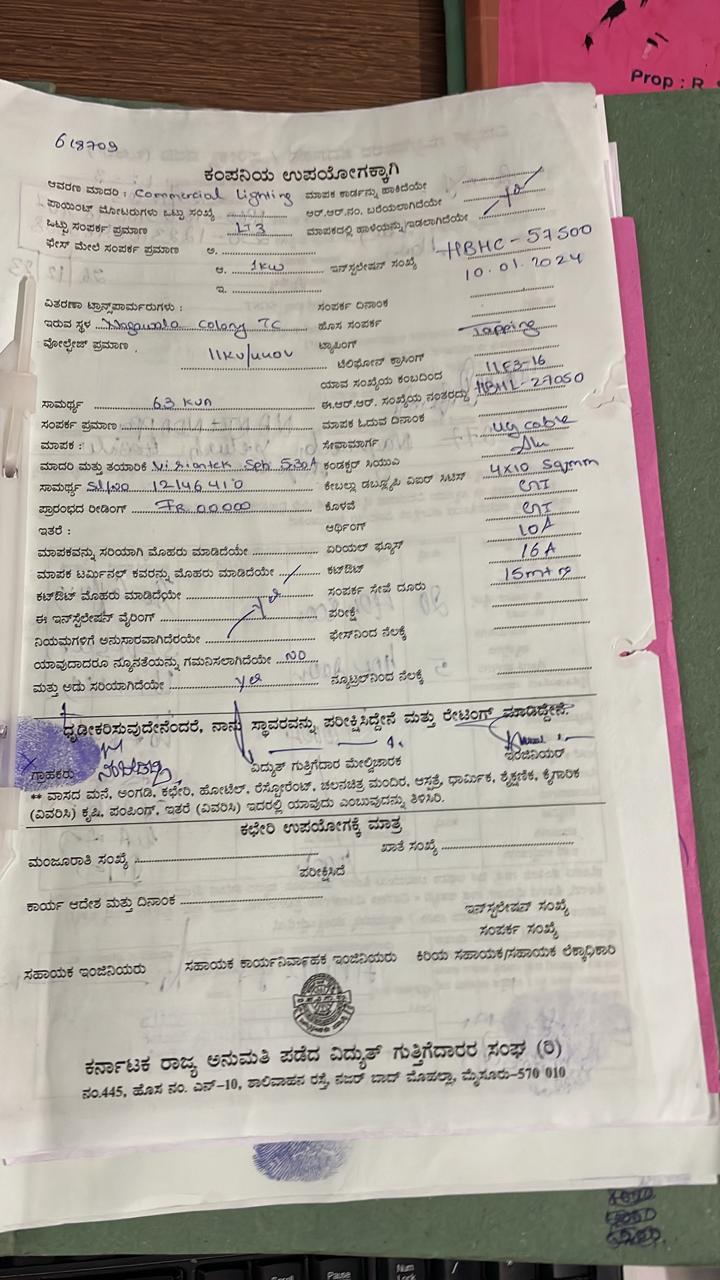 Prop : R
618709
ಕಂಪನಿಯ ಉಪಯೋಗಕ್ಕಾಗಿ
ಆವರಣ ಮಾದರಿ : Commercial Lighting ಮಾಪಕ ಕಾರ್ಡನ್ನು ಹಾಕಿದೆಯೇ
ಪಾಯಿಂಟ್ ಮೋಟರುಗಳು ಒಟ್ಟು ಸಂಖ್ಯೆ ಆರ್.ಆರ್.ನಂ. ಬರೆಯಲಾಗಿದೆಯೇ
ಒಟ್ಟು ಸಂಪರ್ಕ ಪ್ರಮಾಣ LT3 ಮಾಪಕದಲ್ಲಿ ಹಾಳೆಯನ್ನು ಇಡಲಾಗಿದೆಯೇ
ಫೇಸ್ ಮೇಲೆ ಸಂಪರ್ಕ ಪ್ರಮಾಣ ಅ.
ಆ. 1KW ಇನ್‌ಸ್ಟಲೇಷನ್ ಸಂಖ್ಯೆ HBHC-57500
ಇ. 10.01.2024
ವಿತರಣಾ ಟ್ರಾನ್ಸ್‌ಫಾರ್ಮರುಗಳು : ಸಂಪರ್ಕ ದಿನಾಂಕ
ಇರುವ ಸ್ಥಳ Nagawala Colony TC ಹೊಸ ಸಂಪರ್ಕ
ವೋಲ್ಟೇಜ್ ಪ್ರಮಾಣ 11KV/440V ಟ್ಯಾಪಿಂಗ್ Tapping
ಟೆಲಿಫೋನ್ ಕ್ರಾಸಿಂಗ್
ಯಾವ ಸಂಖ್ಯೆಯ ಕಂಬದಿಂದ 11F3-16
ಸಾಮರ್ಥ್ಯ 63 KVA ಈ.ಆರ್.ಆರ್. ಸಂಖ್ಯೆಯ ನಂತರದ್ದು HBML-27050
ಸಂಪರ್ಕ ಪ್ರಮಾಣ ಮಾಪಕ ಓದುವ ದಿನಾಂಕ
ಮಾಪಕ : ಸೇವಾಮಾರ್ಗ UG cable
ಮಾದರಿ ಮತ್ತು ತಯಾರಿಕೆ Visiontek Sph 5-30A ಕಂಡಕ್ಟರ್ ಸಿಯುಎ Alu
ಸಾಮರ್ಥ್ಯ Sl/no 12146410 ಕೇಬಲ್ಲು ಡಬ್ಲ್ಯೂಪಿ ವಿಐರ್ ಸಿಟಿಸ್ 4x10 Sqmm
ಪ್ರಾರಂಭದ ರೀಡಿಂಗ್ FR 00000 ಕೊಳವೆ GI
ಇತರೆ : ಆರ್ಥಿಂಗ್ GI
ಮಾಪಕವನ್ನು ಸರಿಯಾಗಿ ಮೊಹರು ಮಾಡಿದೆಯೇ ಏರಿಯಲ್ ಫ್ಯೂಸ್ 10A
ಮಾಪಕ ಟರ್ಮಿನಲ್ ಕವರನ್ನು ಮೊಹರು ಮಾಡಿದೆಯೇ ಕಟ್‌ಔಟ್ 16A
ಕಟ್‌ಔಟ್ ಮೊಹರು ಮಾಡಿದೆಯೇ ಸಂಪರ್ಕ ಸೇವೆ ದೂರು 15mtrs
ಈ ಇನ್‌ಸ್ಟೆಲೇಷನ್ ವೈರಿಂಗ್ yes ಪರೀಕ್ಷೆ
ನಿಯಮಗಳಿಗೆ ಅನುಸಾರವಾಗಿದೆರೆಯೇ ಫೇಸ್‌ನಿಂದ ನೆಲಕ್ಕೆ
ಯಾವುದಾದರೂ ನ್ಯೂನತೆಯನ್ನು ಗಮನಿಸಲಾಗಿದೆಯೇ NO
ಮತ್ತು ಅದು ಸರಿಯಾಗಿದೆಯೇ yes ನ್ಯೂಟ್ರಲ್‌ನಿಂದ ನೆಲಕ್ಕೆ
ಧೃಡೀಕರಿಸುವುದೇನೆಂದರೆ, ನಾನು ಸ್ಥಾವರವನ್ನು ಪರೀಕ್ಷಿಸಿದ್ದೇನೆ ಮತ್ತು ರೇಟಿಂಗ್ ಮಾಡಿದ್ದೇನೆ.
ಗ್ರಾಹಕರು ವಿದ್ಯುತ್ ಗುತ್ತಿಗೆದಾರ ಮೇಲ್ವಿಚಾರಕ ಇಂಜಿನಿಯರ್
** ವಾಸದ ಮನೆ, ಅಂಗಡಿ, ಕಛೇರಿ, ಹೋಟೆಲ್, ರೆಸ್ಟೋರೆಂಟ್, ಚಲನಚಿತ್ರ ಮಂದಿರ, ಆಸ್ಪತ್ರೆ, ಧಾರ್ಮಿಕ, ಶೈಕ್ಷಣಿಕ, ಕೈಗಾರಿಕ
(ವಿವರಿಸಿ) ಕೃಷಿ, ಪಂಪಿಂಗ್, ಇತರೆ (ವಿವರಿಸಿ) ಇದರಲ್ಲಿ ಯಾವುದು ಎಂಬುವುದನ್ನು ತಿಳಿಸಿರಿ.
ಕಛೇರಿ ಉಪಯೋಗಕ್ಕೆ ಮಾತ್ರ
ಮಂಜೂರಾತಿ ಸಂಖ್ಯೆ ಖಾತೆ ಸಂಖ್ಯೆ
ಪರೀಕ್ಷಿಸಿದೆ
ಕಾರ್ಯ ಆದೇಶ ಮತ್ತು ದಿನಾಂಕ
ಇನ್‌ಸ್ಟಲೇಷನ್ ಸಂಖ್ಯೆ
ಸಂಪರ್ಕ ಸಂಖ್ಯೆ
ಸಹಾಯಕ ಇಂಜಿನಿಯರು ಸಹಾಯಕ ಕಾರ್ಯನಿರ್ವಾಹಕ ಇಂಜಿನಿಯರು ಕಿರಿಯ ಸಹಾಯಕ/ಸಹಾಯಕ ಲೆಕ್ಕಾಧಿಕಾರಿ
ಕರ್ನಾಟಕ ರಾಜ್ಯ ಅನುಮತಿ ಪಡೆದ ವಿದ್ಯುತ್ ಗುತ್ತಿಗೆದಾರರ ಸಂಘ (ರಿ)
ನಂ.445, ಹೊಸ ನಂ. ಎನ್-10, ಶಾಲಿವಾಹನ ರಸ್ತೆ, ನಜರ್ ಬಾದ್ ಮೊಹಲ್ಲಾ, ಮೈಸೂರು-570 010
Pause
Num
Lock